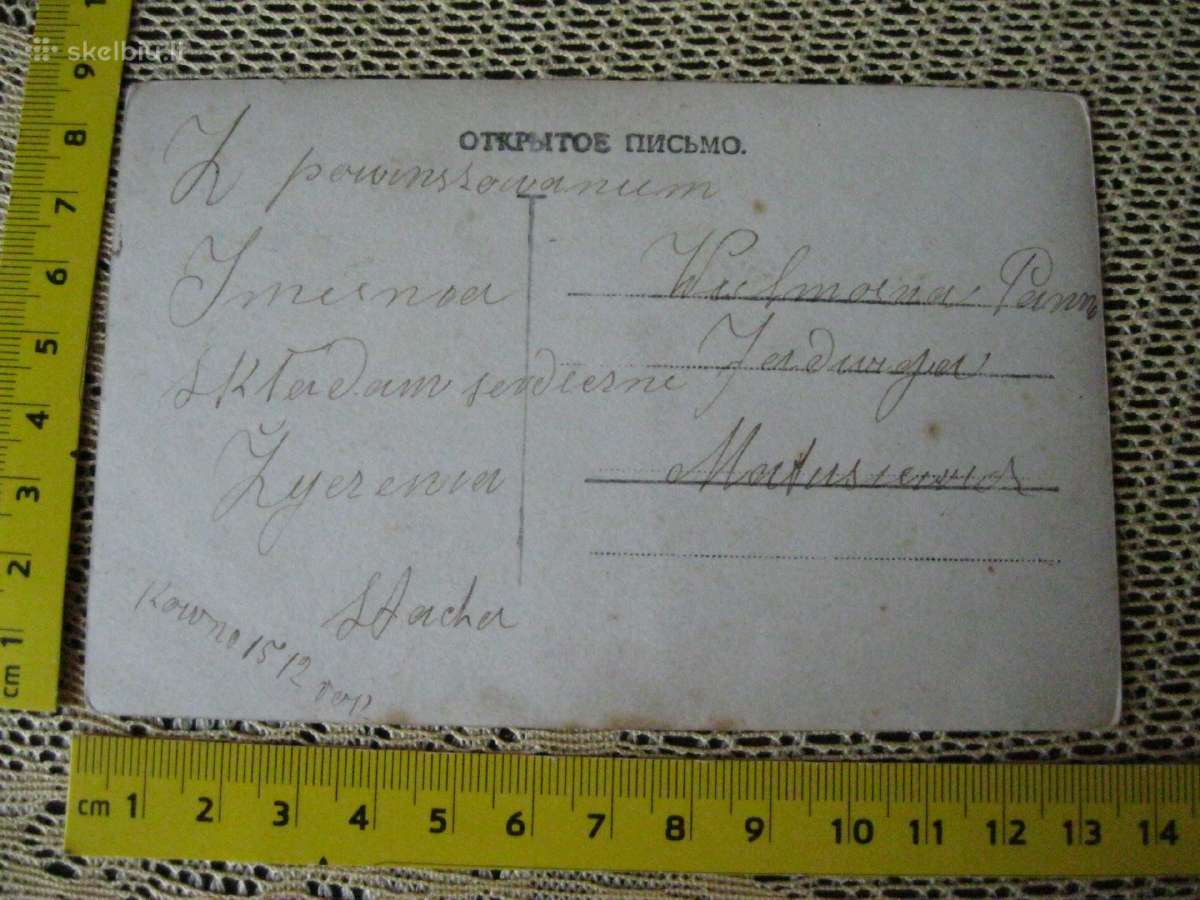 skelbiu.lt
ОТКРЫТОЕ ПИСЬМО.
Z powinszowanium
Imienia
składam serdeczne
Zyczenia
Stacha
Kowno 15 12
Wielmożna Panna
Jadwiga
Matusiewicz
cm 1 2 3 4 5 6 7 8 9
cm 1 2 3 4 5 6 7 8 9 10 11 12 13 14